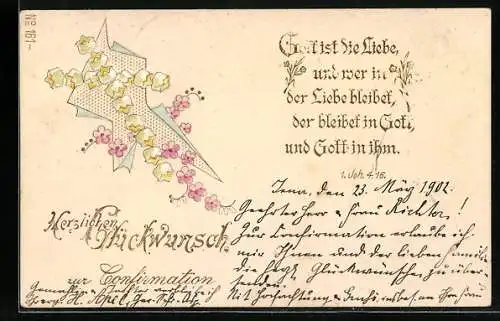 No 161-
Gott ist die Liebe,
und wer in
der Liebe bleibet,
der bleibet in Gott,
und Gott in ihm.
1. Joh. 4. 16.
Herzlichen
Glückwunsch
zur Confirmation
Jena, den 23. März 1902.
Geehrter Herr & Frau Richter!
Zur Confirmation erlaube ich
mir Ihnen und der lieben Familie
die herzl. Glückwünsche zu über-
senden.
Mit Hochachtung &
Georg H. Apel,